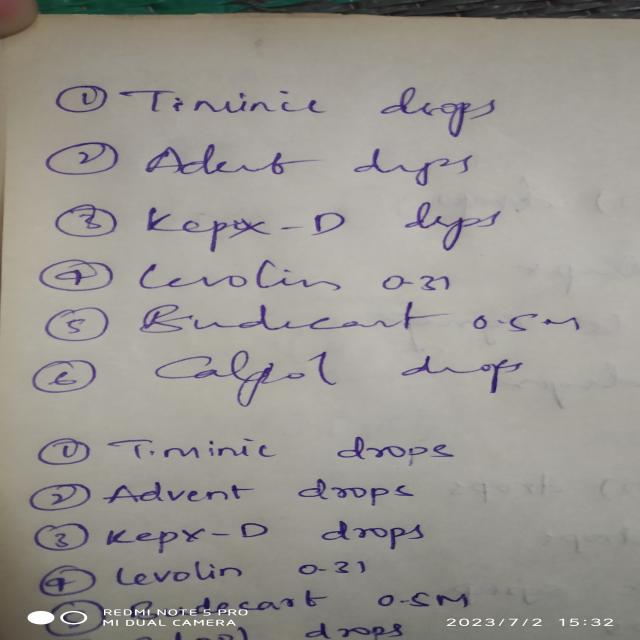 ① Timinic drops
② Advent drops
③ Kepx-D drops
④ Levolin 0.31
⑤ Budecart 0.5M
⑥ Calpol drops
① Timinic drops
② Advent drops
③ Kepx-D drops
④ Levolin 0.31
Budecart 0.5M
drops
REDMI NOTE 5 PRO
MI DUAL CAMERA
2023/7/2 15:32